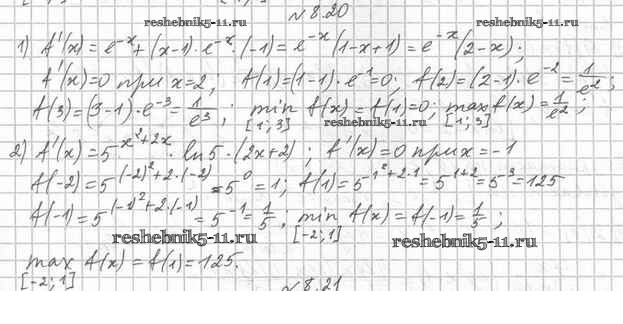 № 8.20
reshebnik5-11.ru
1) f'(x) = e^{-x} + (x-1)·e^{-x}·(-1) = e^{-x}(1-x+1) = e^{-x}(2-x);
f'(x)=0 при x=2; f(1)=(1-1)·e^{-1}=0; f(2)=(2-1)·e^{-2}=1/e²;
f(3)=(3-1)·e^{-3}=1/e³; min f(x)=f(1)=0; max f(x)=1/e²;
[1;3] reshebnik5-11.ru [1;3]
2) f'(x)=5^{x²+2x}·ln5·(2x+2); f'(x)=0 при x=-1
f(-2)=5^{(-2)²+2·(-2)}=5⁰=1; f(1)=5^{1²+2·1}=5^{1+2}=5³=125
f(-1)=5^{(-1)²+2·(-1)}=5^{-1}=1/5; min f(x)=f(-1)=1/5;
reshebnik5-11.ru [-2;1] reshebnik5-11.ru
max f(x)=f(1)=125.
[-2;1]
№ 8.21